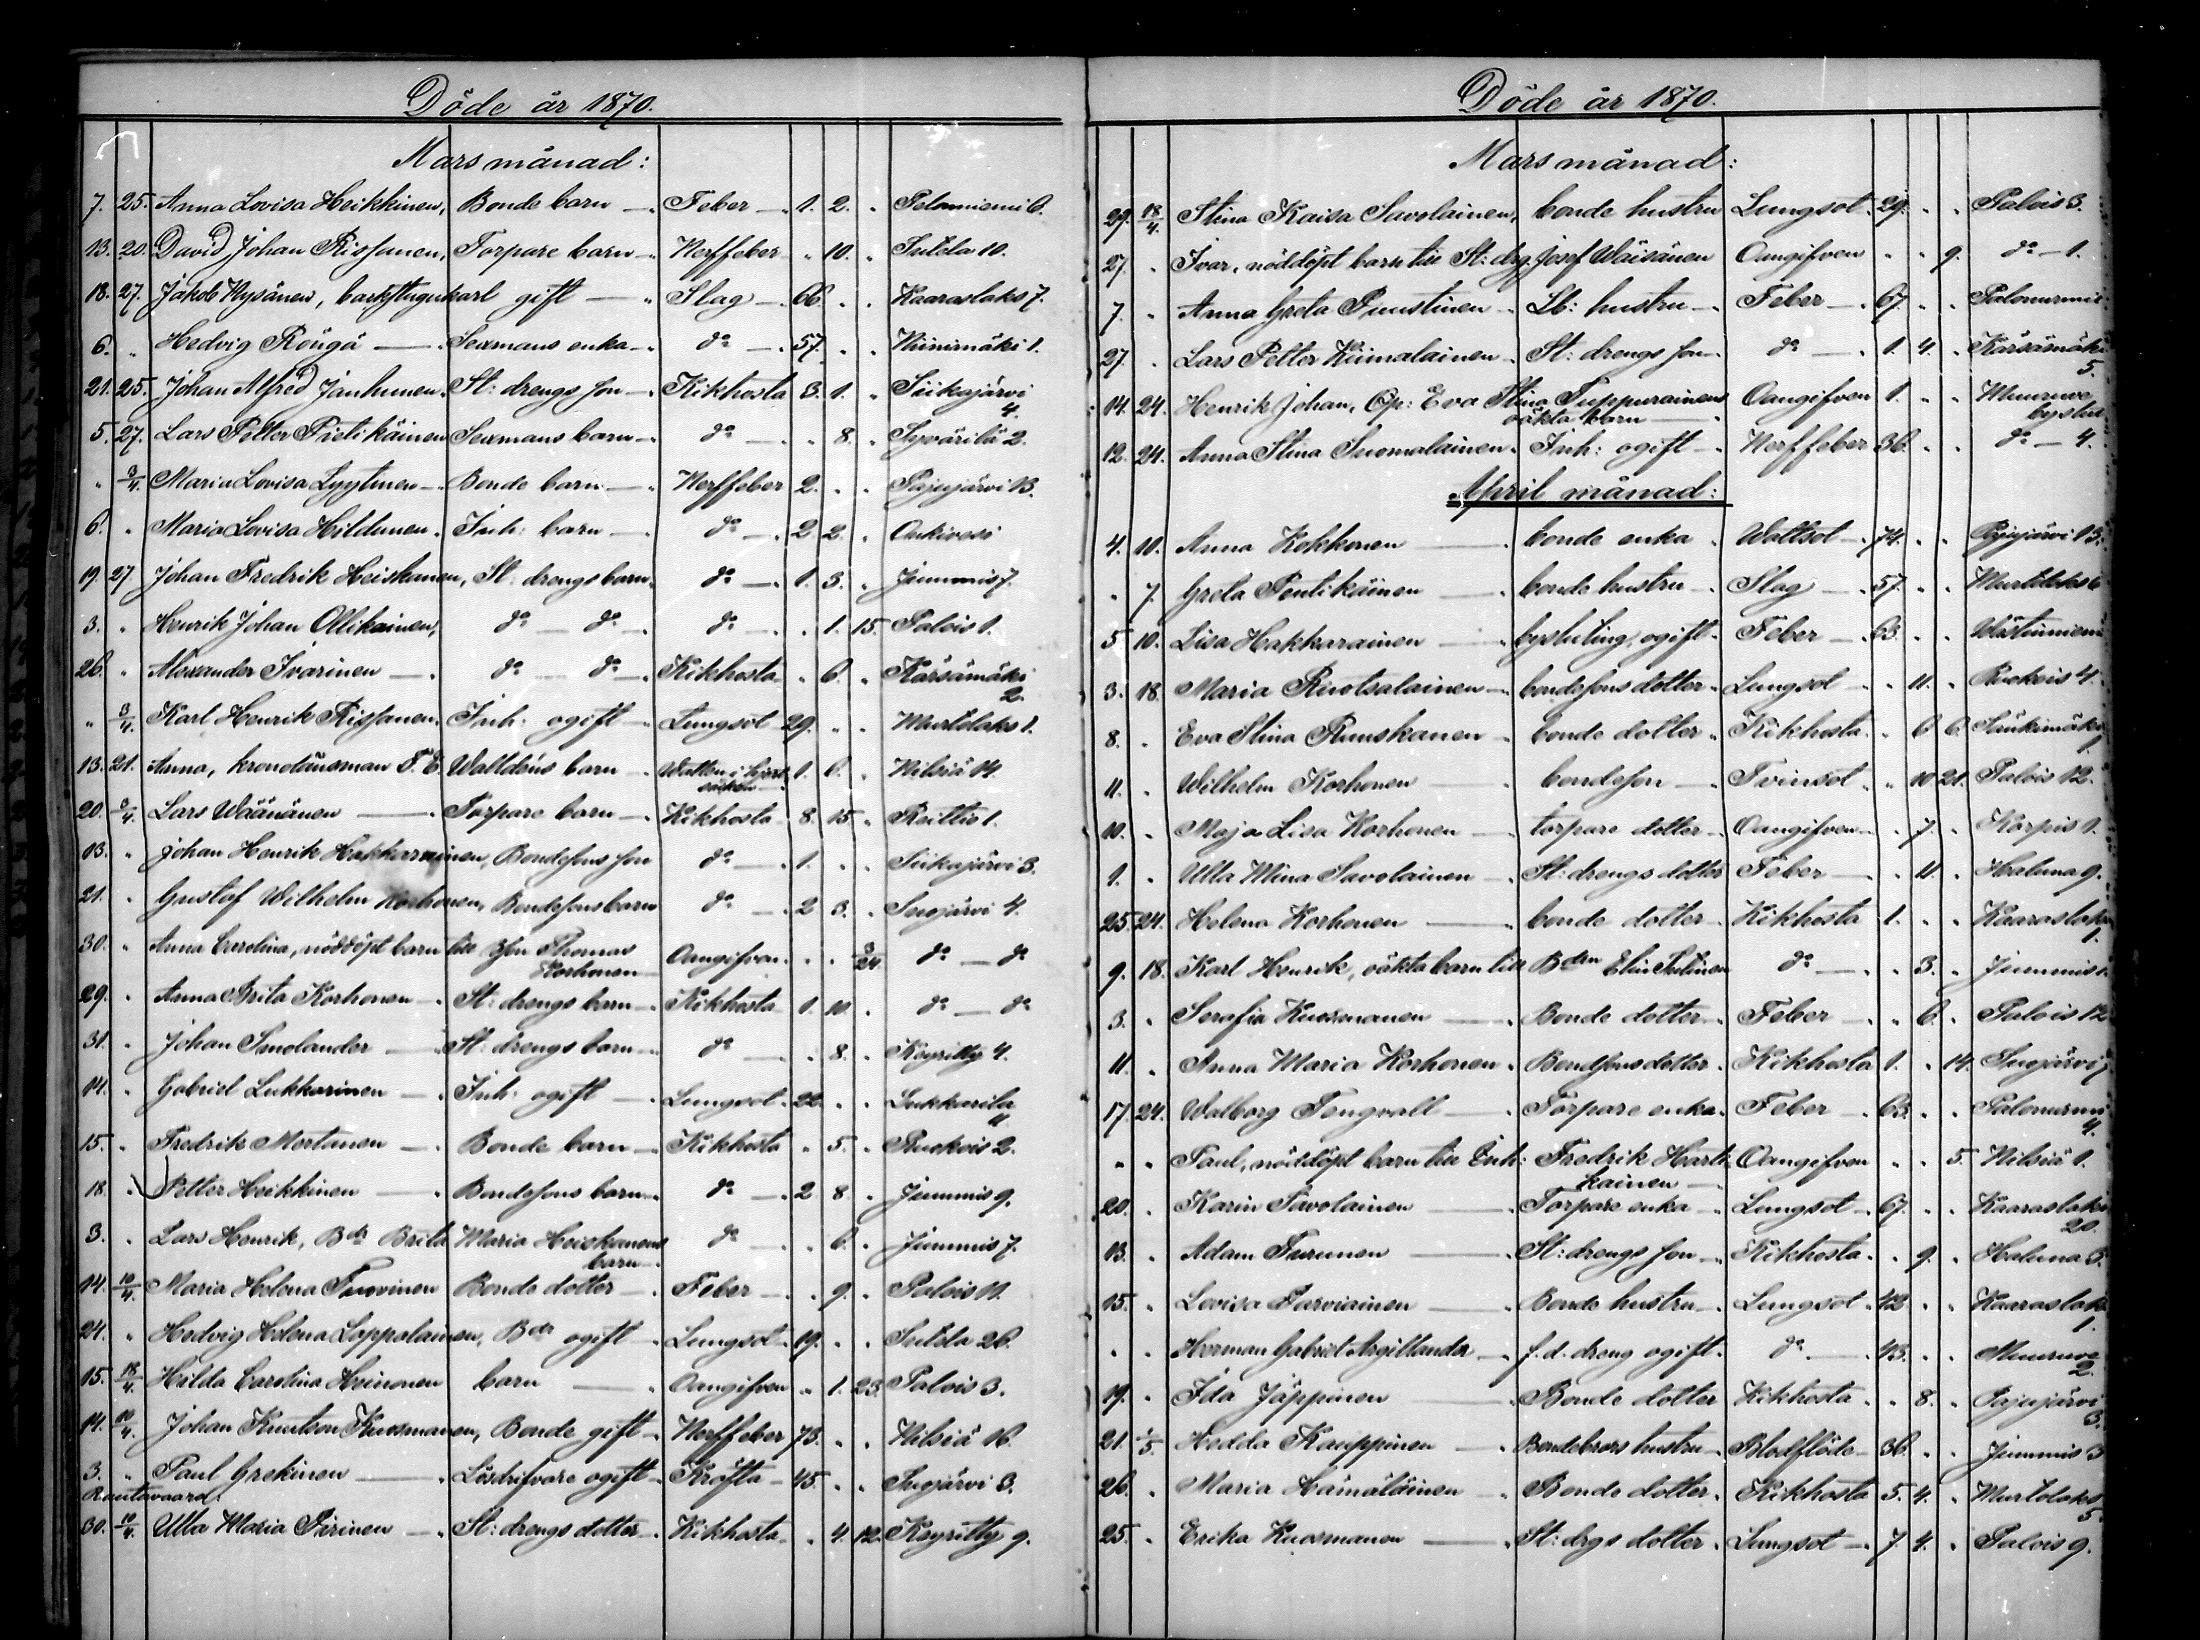 Döde år 1870.
Mars månad:
7. 25. Anna Lovisa Heikkinen, Bonde barn — Feber — 1. 2. " Pelonniemi 6.
13. 20. David Johan Rissanen, Torpare barn — Nerffeber " 10. " Sutela 10.
18. 27. Jakob Nysänen, backstugukarl gift — Slag — 66. " " Kaaraslaks 7.
6. " Hedvig Röngä — Sexmans enka — do — 57. " " Niinimäki 1.
21. 25. Johan Alfred Janhunen. St: drengs son — Kikhosta 3. 1. " Siikajärvi 4.
5. 27. Lars Petter Pietikäinen Sexmans barn — do — " 8. " Syvärilä 2.
" 3/4. Maria Lovisa Lyytinen — Bonde barn — Nerffeber 2. " " Pajujärvi 13.
6. " Maria Lovisa Hildunen. Inh: barn — do — 2. 2. " Onkivesi
19. 27. Johan Fredrik Heiskanen, St: drengs barn do — 1. 3. " Jummis 7.
3. " Henrik Johan Ollikainen, do — do — do — " 1. 15. Palois 1.
26. " Alexander Ivarinen — do — do — Kikhosta " 6. " Kärsämäki 2.
" 3/4. Karl Henrik Rissanen. Inh: ogift — Lungsot 29. " " Murtolaks 1.
13. 21. Anna, kronolänsman F. E. Walldéns barn — Watten i hjertsäcken 1. 6. " Nilsiä 14.
20. 3/4. Lars Väänänen — Torpare barn — Kikhosta 8. 15 " Reittis 1.
13. " Johan Henrik Hakkarainen, Bondesons son do — 1. " " Siikajärvi 3.
21. " Gustaf Wilhelm Korhonen, Bondesons barn do — 2 3. " Suojärvi 4.
30. " Anna Carolina, nöddöpt barn till Thomas Korhonen Oangifven " " 3/24. do — do
29. " Anna Brita Korhonen — St: drengs barn — Kikhosta 1. 10. do — do
31. " Johan Smolander — St: drengs barn — do — " 8. " Keyritty 4.
14. " Gabriel Lukkarinen — Inh: ogift — Lungsot 22. " " Lukkarila 4.
15. " Fredrik Mertanen — Bonde barn — Kikhosta " 5. " Ruokois 2.
18. " Petter Heikkinen — Bondesons barn — do — 2 8. " Jummis 9.
3. " Lars Henrik, Bdr Brita Maria Heiskanens barn do — " 6. " Jummis 7.
14. 10/4. Maria Helena Tuovinen Bonde dotter — Feber — " 9. " Palois 11.
24. " Hedvig Helena Lappalainen, Bdr ogift — Lungsot 19. " " Sutela 26.
15. 18/4. Hilda Carolina Heinonen barn — Oangifven " 1. 23. Palois 3.
14. 10/4. Johan Knutson Kuosmanen, Bonde gift — Nerffeber 73. " " Nilsiä 16.
3. " Paul Grekinen — Lösdrifvare ogift — Kräfta — 45. " " Suojärvi 3.
Rautavaara:
30. 10/4. Ulla Maria Pirinen — St: drengs dotter — Kikhosta " 4. 12. Keyritty 9.
Döde år 1870.
Mars månad:
29. 18/4. Stina Kaisa Savolainen, bonde hustru Lungsot 29. " " Palois 3.
27. " Ivar, nöddöpt barn till St: drg Josef Wäisänen Oangifven " " 9. do — 1.
7. " Anna Greta Puustinen Lb: hustru — Feber — 67. " " Palonurmi
27. " Lars Petter Kiimalainen — St: drengs son — do — 1. 4. " Kärsämäki 5.
14. 24. Henrik Johan, Qp: Eva Stina Tuppurainens oäkta barn — Oangifven 1. " Muuruve
12. 24. Anna Stina Suomalainen. Inh: ogift — Nerffeber 36. " " do — 4.
April månad:
4. 10. Anna Kokkonen — bonde enka Wattsot — 74. " " Pajujärvi 13.
" 7. Greta Pentikäinen — bonde hustru — Slag — 57. " " Murtolaks 6
5 10. Lisa Hakkarainen — bysytning, ogift — Feber — 63. " " Västinniemi
3. 18. Maria Ruotsalainen — bondesons dotter — Lungsot — " 11. " Ruokois 4.
8. " Eva Stina Ruuskanen — bonde dotter Kikhosta " 6 6. Sänkimäki 1.
11. " Wilhelm Korhonen — bondeson — Tvinsot " 10 21. Palois 12.
10. " Maja Lisa Korhonen — torpare dotter — Oangifven " 7. " Korpis 1.
1. " Ulla Mina Savolainen — St: drengs dotter Feber — " 11. " Haluna 9.
25 24. Helena Korhonen — bonde dotter Kikhosta 1. " " Kaaraslaks 1.
9. 18. Karl Henrik, oäkta barn till Bdrn Elin Sutinen do — " 3. " Jummis 1.
3. " Serafia Kuosmanen — Bonde dotter — Feber — " 6. " Palois 12
11. " Anna Maria Korhonen Bondesons dotter Kikhosta 1. " 14. Suojärvi
17. 24. Walborg Tengvall — Torpare enka Feber — 63. " " Palonurmi 4.
" " Paul, nöddöpt barn till Inh: Fredrik Hartikainen — Oangifven " " 5. Nilsiä 1.
20. " Karin Savolainen — Torpare enka — Lungsot — 67. " " Kaaraslaks 20.
13. " Adam Turunen — St: drengs son — Kikhosta " 9. " Haluna 5.
15. " Lovisa Parviainen — Bonde hustru — Lungsot 42 " " Kaaraslaks 1.
" " Herman Gabriel Argillander — f. d. dreng ogift do — 43. " " Muuruve 2.
19. " Ida Jäppinen — Bonde dotter Kikhosta " 8. " Pajujärvi 3.
21. 1/5. Hedda Kauppinen — Bondebrors hustru — Blodflöde — 36. " " Jummis 3
26. " Maria Hämäläinen — Bonde dotter. Kikhosta 5. 4. " Murtolaks 5.
25. " Erika Kuosmanen — St: drgs dotter Lungsot — 7 4. " Palois 9.